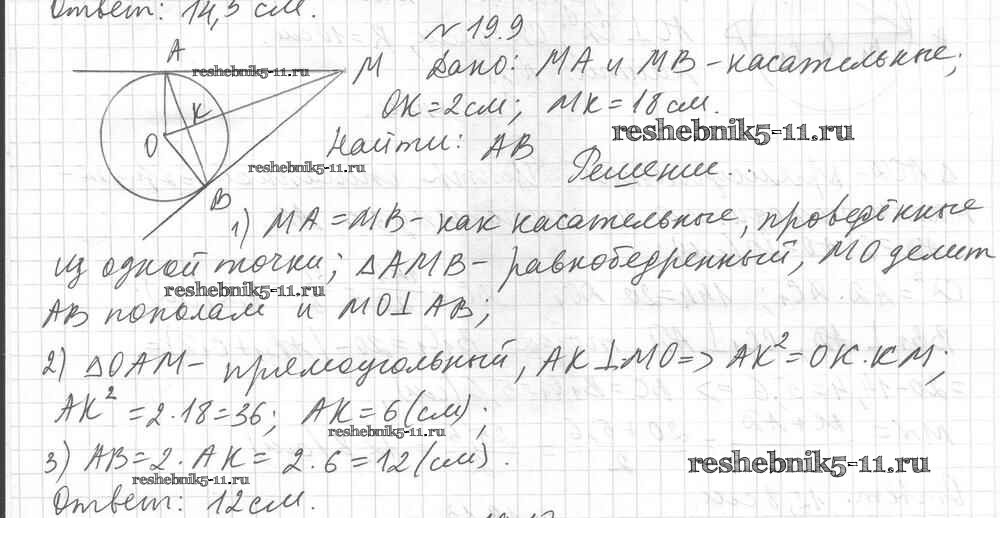 Ответ: 14,5 см.
№ 19.9
A
reshebnik5-11.ru
M Дано: MA и MB - касательные;
K
OK = 2 см; MK = 18 см.
reshebnik5-11.ru
O
Найти: AB
reshebnik5-11.ru
Решение.
B
1) MA = MB - как касательные, проведённые
из одной точки; △AMB - равнобедренный, MO делит
reshebnik5-11.ru
AB пополам и MO⊥AB;
2) △OAM - прямоугольный, AK⊥MO => AK² = OK·KM;
AK² = 2·18 = 36; AK = 6 (см);
reshebnik5-11.ru
3) AB = 2·AK = 2·6 = 12 (см).
reshebnik5-11.ru
reshebnik5-11.ru
Ответ: 12 см.